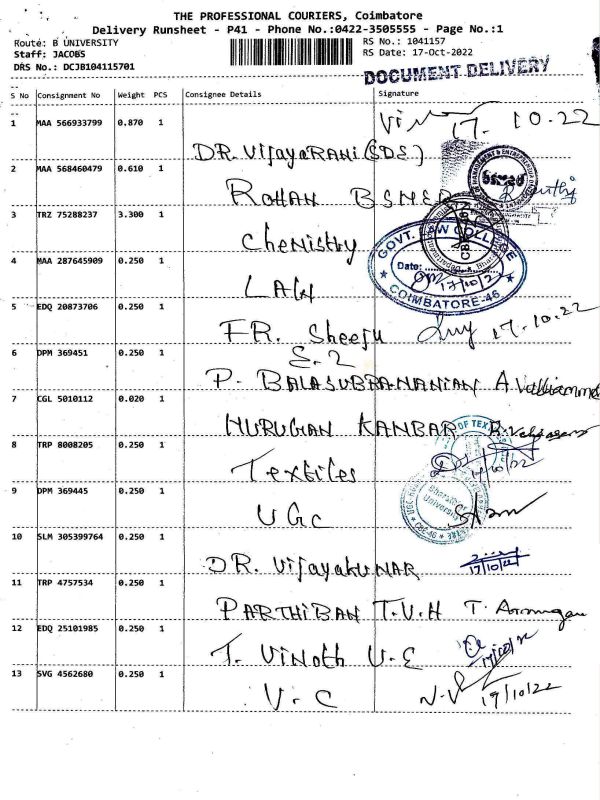 THE PROFESSIONAL COURIERS, Coimbatore
Delivery Runsheet - P41 - Phone No.:0422-3505555 - Page No.:1
Route: B UNIVERSITY
RS No.: 1041157
Staff: JACOBS
RS Date: 17-Oct-2022
DRS No.: DCJB104115701
DOCUMENT DELIVERY
S No Consignment No Weight PCS Consignee Details Signature
1 MAA 566933799 0.870 1
17.10.22
DR. VijayaRANi (SDE)
2 MAA 568460479 0.610 1
ROHAN BSMED
bsmed
3 TRZ 75288237 3.300 1
Chemistry
4 MAA 287645909 0.250 1
GOVT. LAW COLLEGE
Date: 17/10/22
COIMBATORE-46
LAW
5 EDQ 20873706 0.250 1
FR. Sheeju 17.10.22
S.2
6 DPM 369451 0.250 1
P. BALASUBRAMANIAN A. Valliammal
7 CGL 5010112 0.020 1
MURUGAN KANBAR
8 TRP 8008205 0.250 1
OF TEX
17/10/22
Textiles
9 DPM 369445 0.250 1
Bharathiar University
UGC
10 SLM 305399764 0.250 1
DR. Vijayakumar
17/10/22
11 TRP 4757534 0.250 1
PARTHIBAN T.V.H T. Arumugam
12 EDQ 25101985 0.250 1
T. Vinoth U.E
17/10/22
13 SVG 4562680 0.250 1
V.C
17/10/22